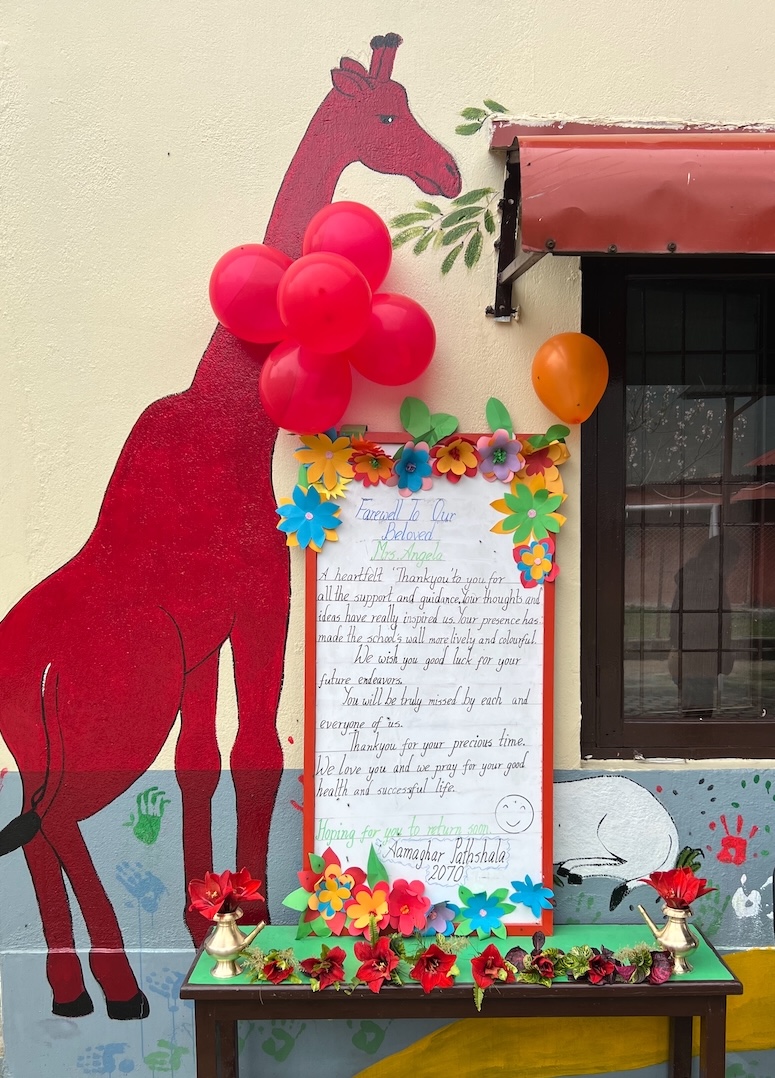 Farewell To Our
Beloved
Mrs. Angela
A heartfelt "Thankyou" to you for
all the support and guidance. Your thoughts and
ideas have really inspired us. Your presence has
made the school's wall more lively and colourful.
We wish you good luck for your
future endeavors.
You will be truly missed by each and
everyone of us.
Thankyou for your precious time.
We love you and we pray for your good
health and successful life.
Hoping for you to return soon
Aamaghar Pathshala
2070